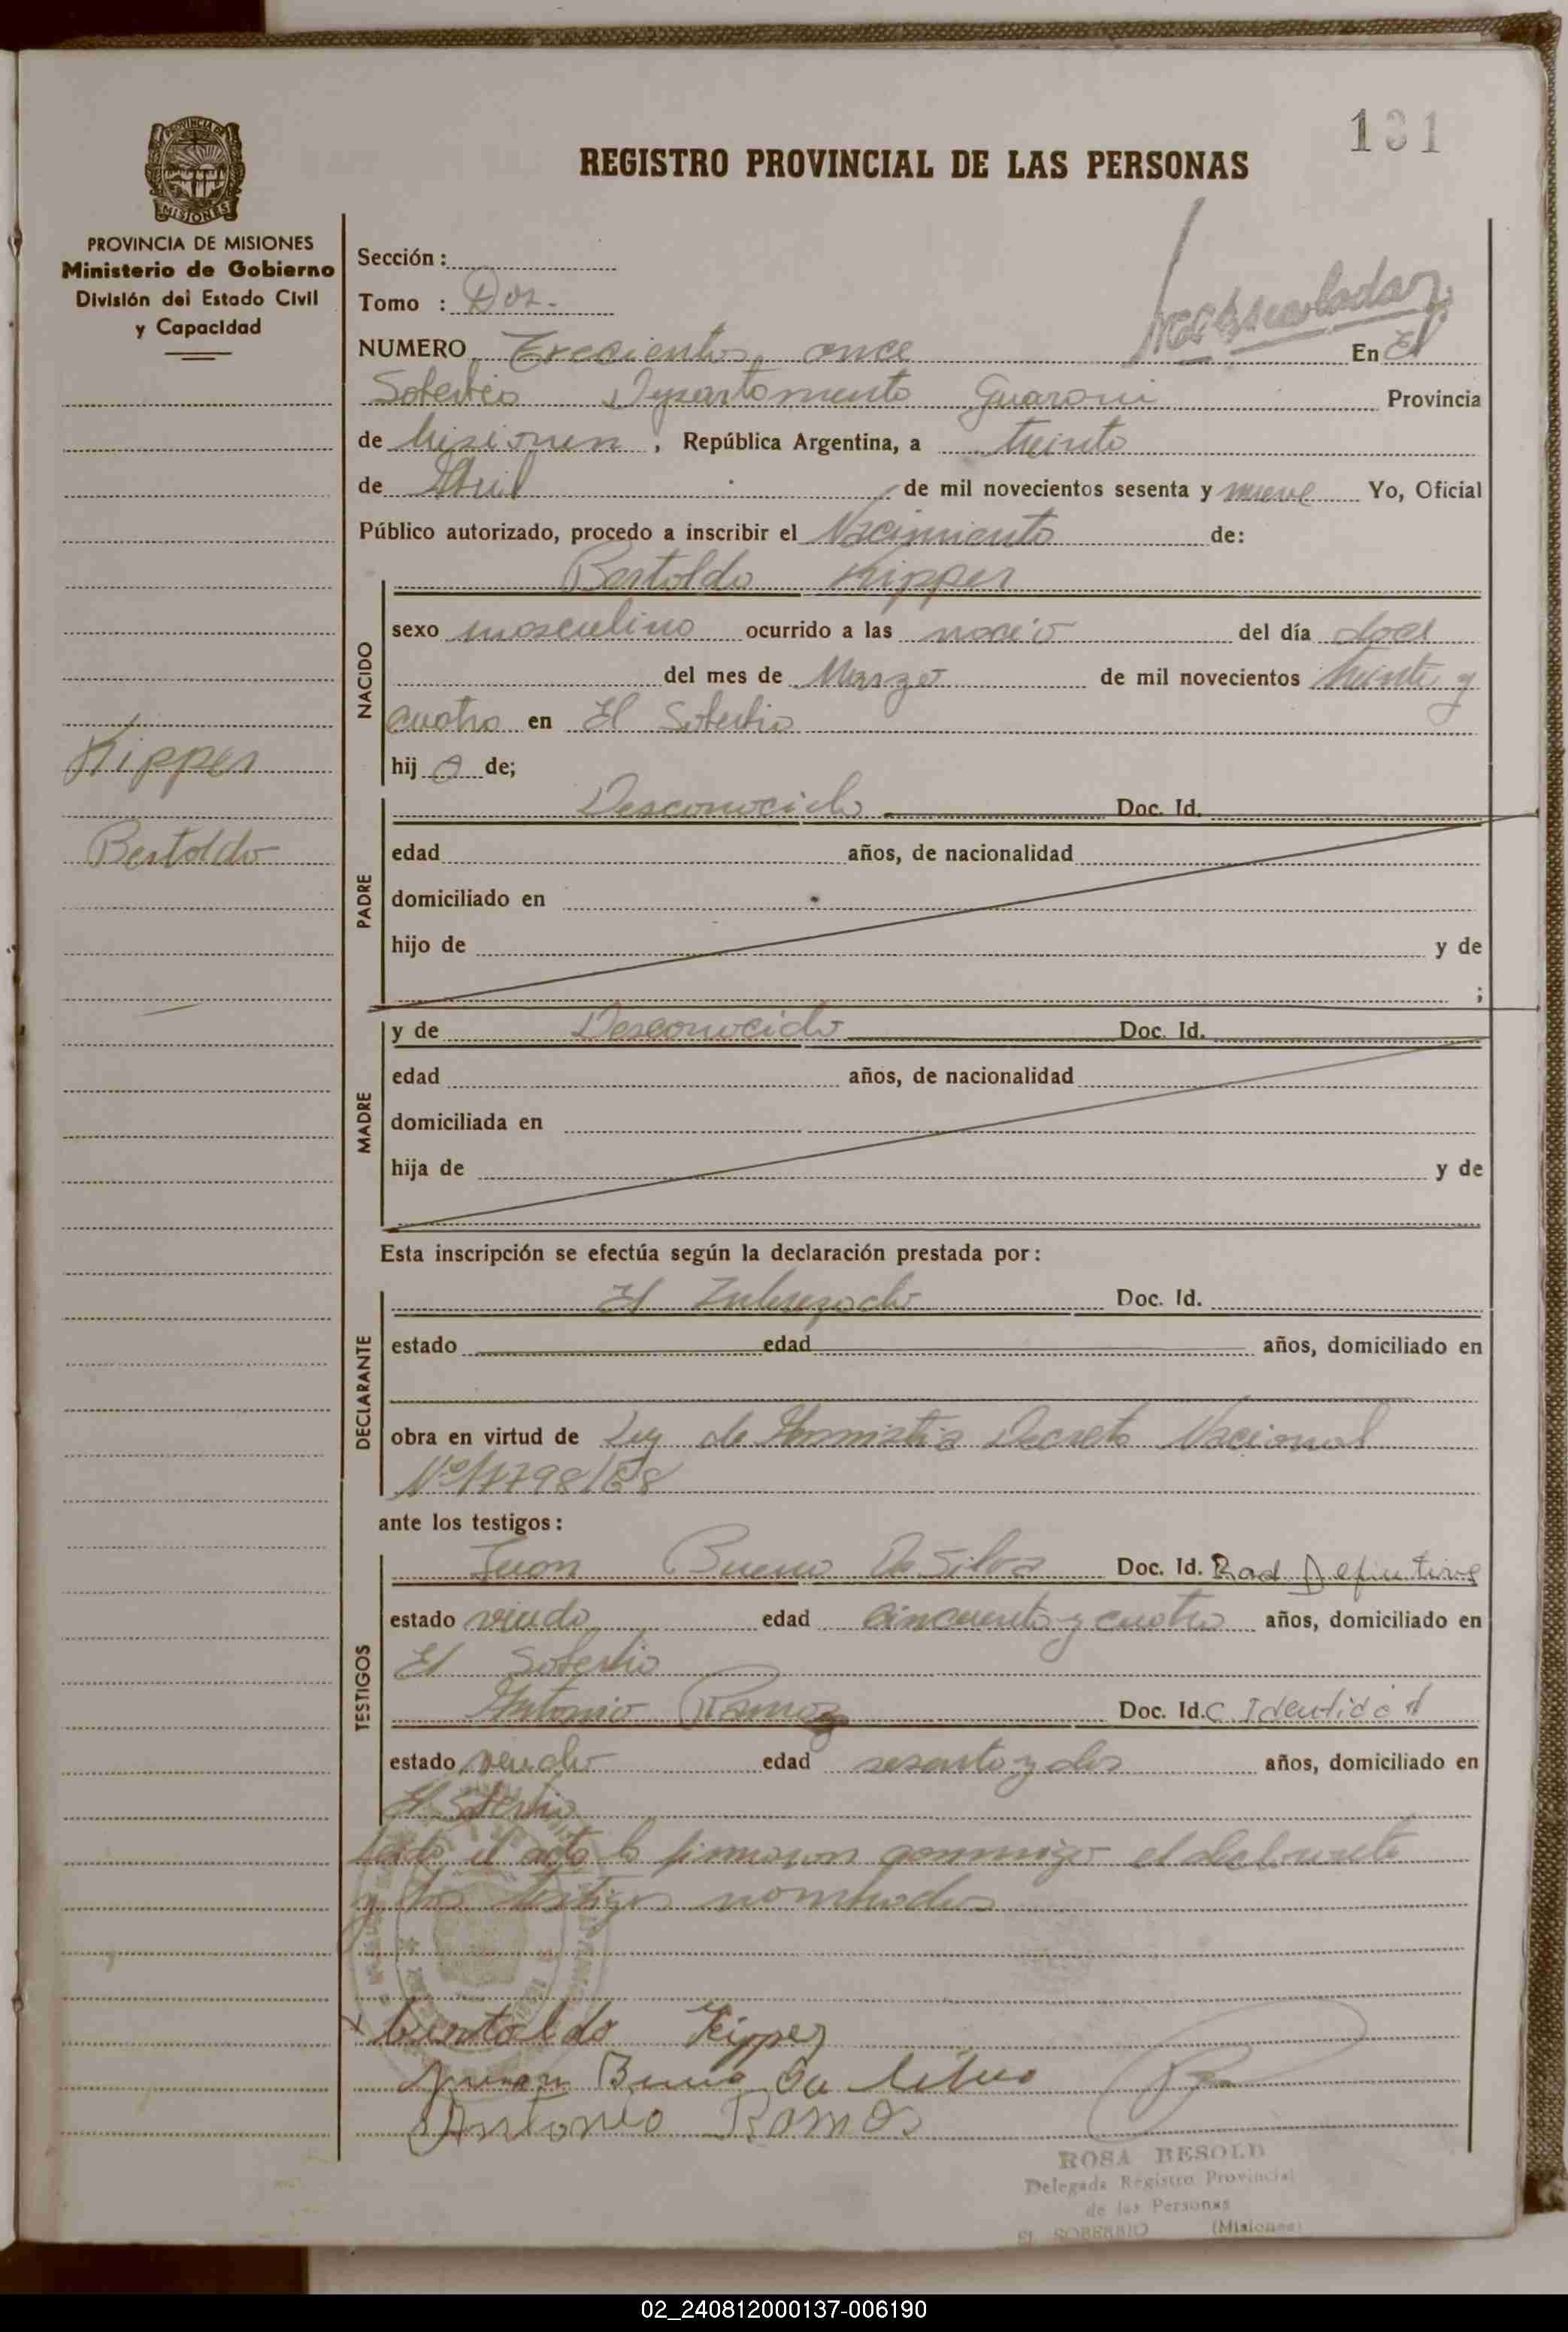 131
REGISTRO PROVINCIAL DE LAS PERSONAS
PROVINCIA DE MISIONES
MISIONES
PROVINCIA DE MISIONES
Ministerio de Gobierno
División del Estado Civil
y Capacidad
Kipper
Bertoldo
Sección:
Tomo : Dos.
NUMERO Trecientos once En El
Soberbio Departamento Guarani Provincia
de Misiones, República Argentina, a treinta
de Abril de mil novecientos sesenta y nueve Yo, Oficial
Público autorizado, procedo a inscribir el Nacimiento de:
Bertoldo Kipper
NACIDO
sexo masculino ocurrido a las nació del día doce
del mes de Marzo de mil novecientos treinta y
cuatro en El Soberbio
hij o de;
PADRE
Desconocido Doc. Id.
edad años, de nacionalidad
domiciliado en
hijo de y de
;
MADRE
y de Desconocido Doc. Id.
edad años, de nacionalidad
domiciliada en
hija de y de
Esta inscripción se efectúa según la declaración prestada por:
DECLARANTE
El Doc. Id.
estado edad años, domiciliado en
obra en virtud de Ley de Amnistia Decreto Nacional
Nº 17798/68
ante los testigos:
TESTIGOS
Juan Bueno Da Silva Doc. Id. Rad Definitiva
estado viudo edad cincuenta y cuatro años, domiciliado en
El Soberbio
Antonio Ramos Doc. Id. C. Identidad
estado viudo edad sesenta y dos años, domiciliado en
El Soberbio
el acta la firmaron conmigo el
y los testigos nombrados
Bertoldo Kipper
Juan Bueno Da Silva
Antonio Ramos
ROSA BESOLD
Delegada Registro Provincial
de las Personas
EL SOBERBIO (Misiones)
02_240812000137-006190